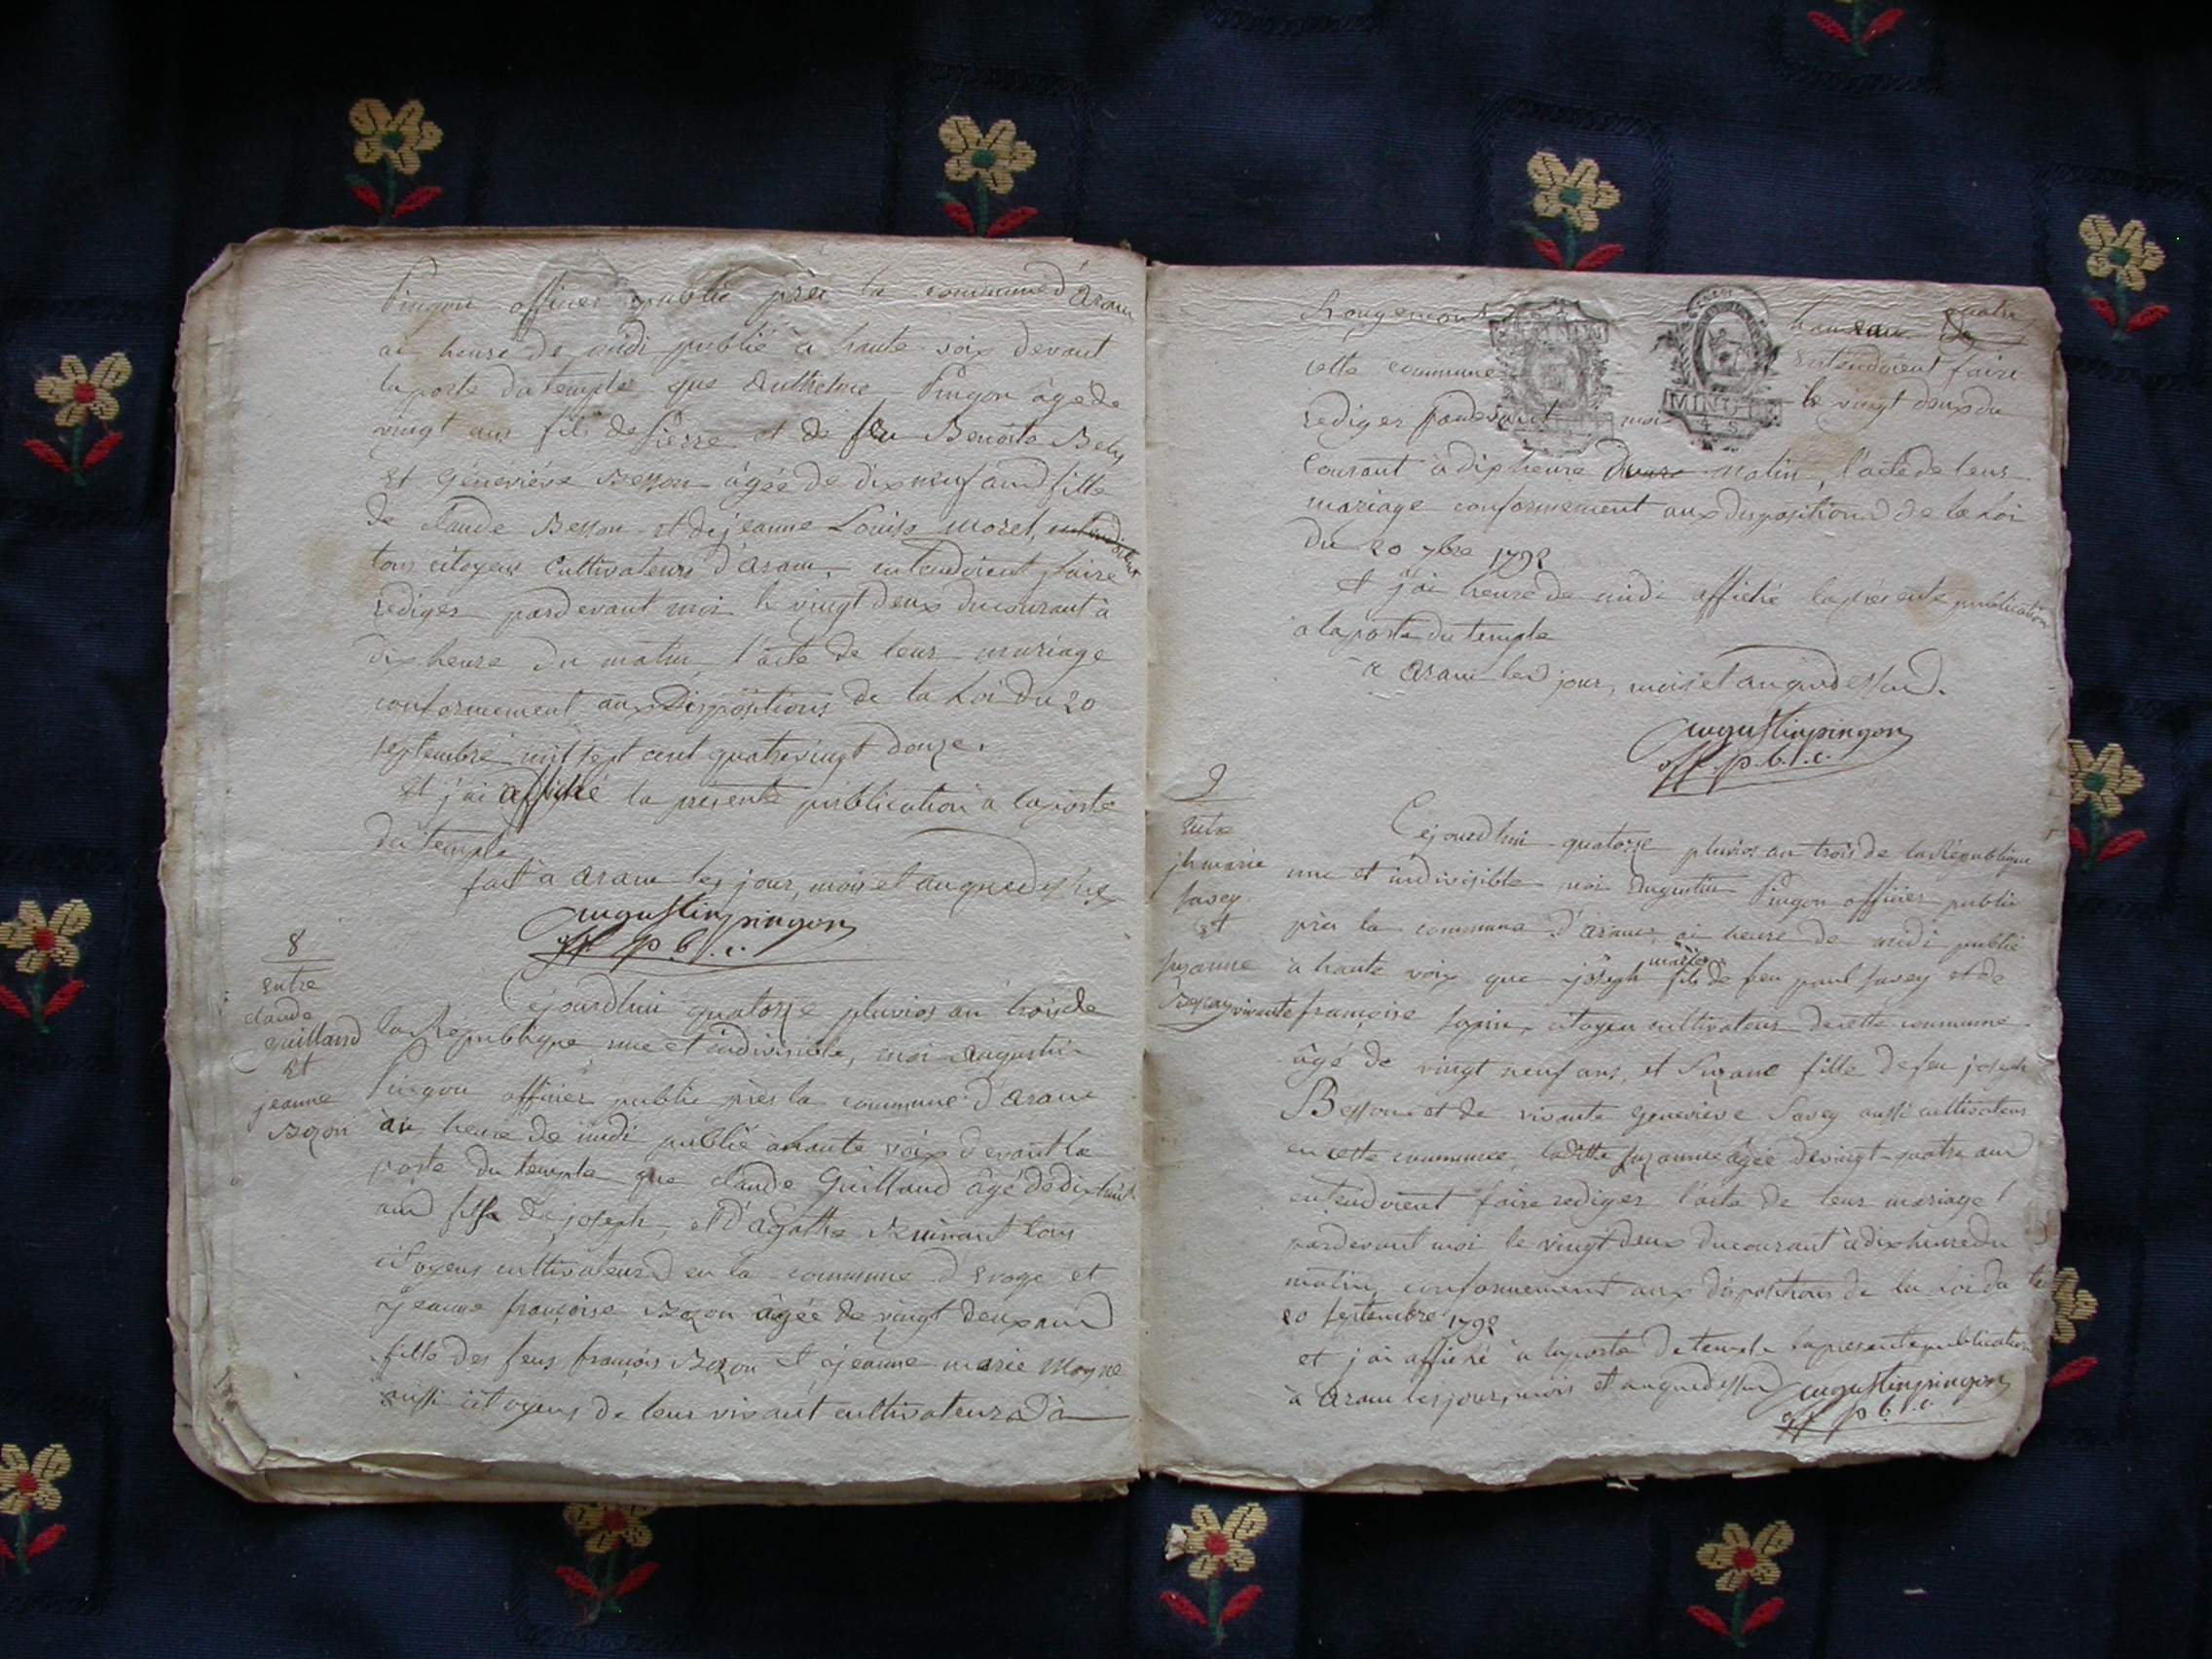 Pingon officier public près la commune d'aranc
au heure de midi publié à haute voix devant
la porte du temple que Anthelme Pingon âgé de
vingt ans fils de pierre et de feu Benoite Bely
et géneviéve Besson âgée de dix neuf ans fille
de claude Besson et de jeanne Louise morel,
tous citoyens cultivateurs d'aranc, entendoient faire
rediger pardevant moi le vingt deux du courant à
dix heure du matin l'acte de leur mariage
conformement aux Dispositions de la Loi du 20
septembre mil sept cent quatrevingt douze.
Et j'ai affiché la presente publication a la porte
du temple
fait à aranc les jour, mois et an que dessus
augustin pingon
off. p.b.l.c.
8
entre
claude
guilland
et
jeanne
Bozon
Cejourdhui quatorze pluvios an trois de
la Republique une et indivisible, moi augustin
Pingon officier public près la commune d'aranc
au heure de midi publié à haute voix devant la
porte du temple que claude Guilland âgé de dix huit
ans fils de joseph, et d'agathe tous
citoyens cultivateurs en la commune d'Evoge et
jeanne françoise Bozon âgée de vingt deux ans
fille des feus françois Bozon et jeanne marie
aussi citoyens de leur vivant cultivateurs à
Rougemont hameau de
cette commune entendoient faire
rediger pardevant moi le vingt deux du
courant à dix heure matin, l'acte de leur
mariage conformement aux dispositions de la Loi
du 20 7bre 1792
Et j'ai heure de midi affiché la présente publication
a la porte du temple
à aranc les jour, mois et an que dessus.
augustin pingon
off. p.b.l.c.
9
entre
jh marie
savey
et
suzanne
Cejourdhui quatorze pluvios an trois de la Republique
une et indivisible moi Augustin Pingon officier public
près la commune d'aranc, au heure de midi publié
à haute voix que joseph marie fils de feu paul savey et de
vivante françoise citoyen cultivateur de cette commune
âgé de vingt neuf ans, et Suzane fille de feu joseph
Besson et de vivante Geneviève Savey aussi cultivateurs
en cette commune, ladite suzanne âgée de vingt-quatre ans
entendoient faire rediger l'acte de leur mariage
pardevant moi le vingt deux du courant à dix heure du
matin, conformement aux dispositions de la Loi du
20 septembre 1792
et j'ai affiché a la porte du temple la presente publication
à aranc les jour, mois et an que dessus augustin pingon
off. p.b.l.c.